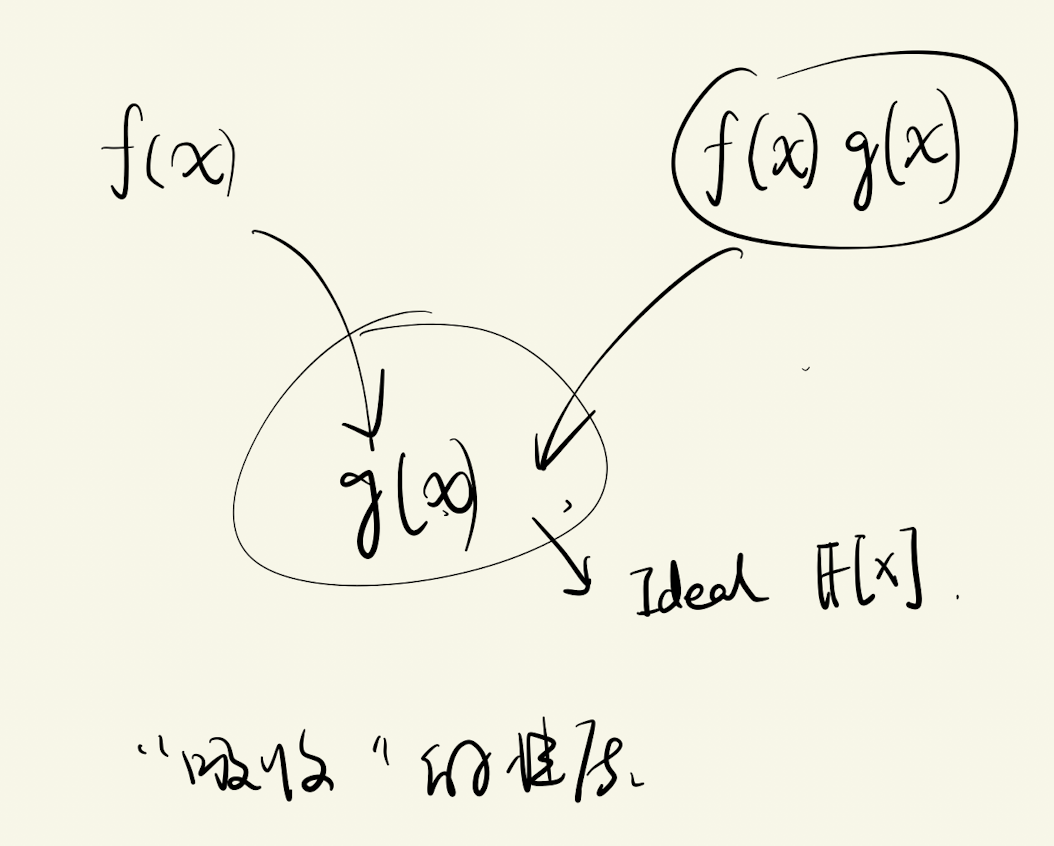 f(x) f(x) g(x)
g(x)
Ideal 𝔽[x].
“吸收”的性质.